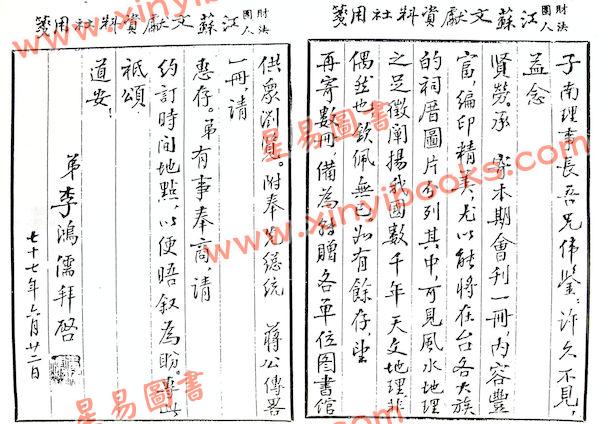 財團法人江蘇文獻資料社用箋
子南理事長吾兄偉鑒:許久不見,
益念
賢勞。承 寄本期會刊一冊,內容豐
富,編印精美,尤以能將在台各大族
的祠厝圖片列其中,可見風水地理
之足徵闡揚我國數千年天文地理非
偶然也,欽佩無已,如有餘存,望
再寄數冊備為轉贈各單位图書館
財團法人江蘇文獻資料社用箋
供眾瀏覽。附奉先總統 蔣公傳畧
一冊,請
惠存。弟有事奉商,請
約訂時間地點,以便晤叙為盼。專此
祇頌
道安!
弟李鴻儒拜啓
七十七年六月廿二日
星易圖書
www.xinyibooks.com
星易圖書
www.xinyibooks.com
星易圖書